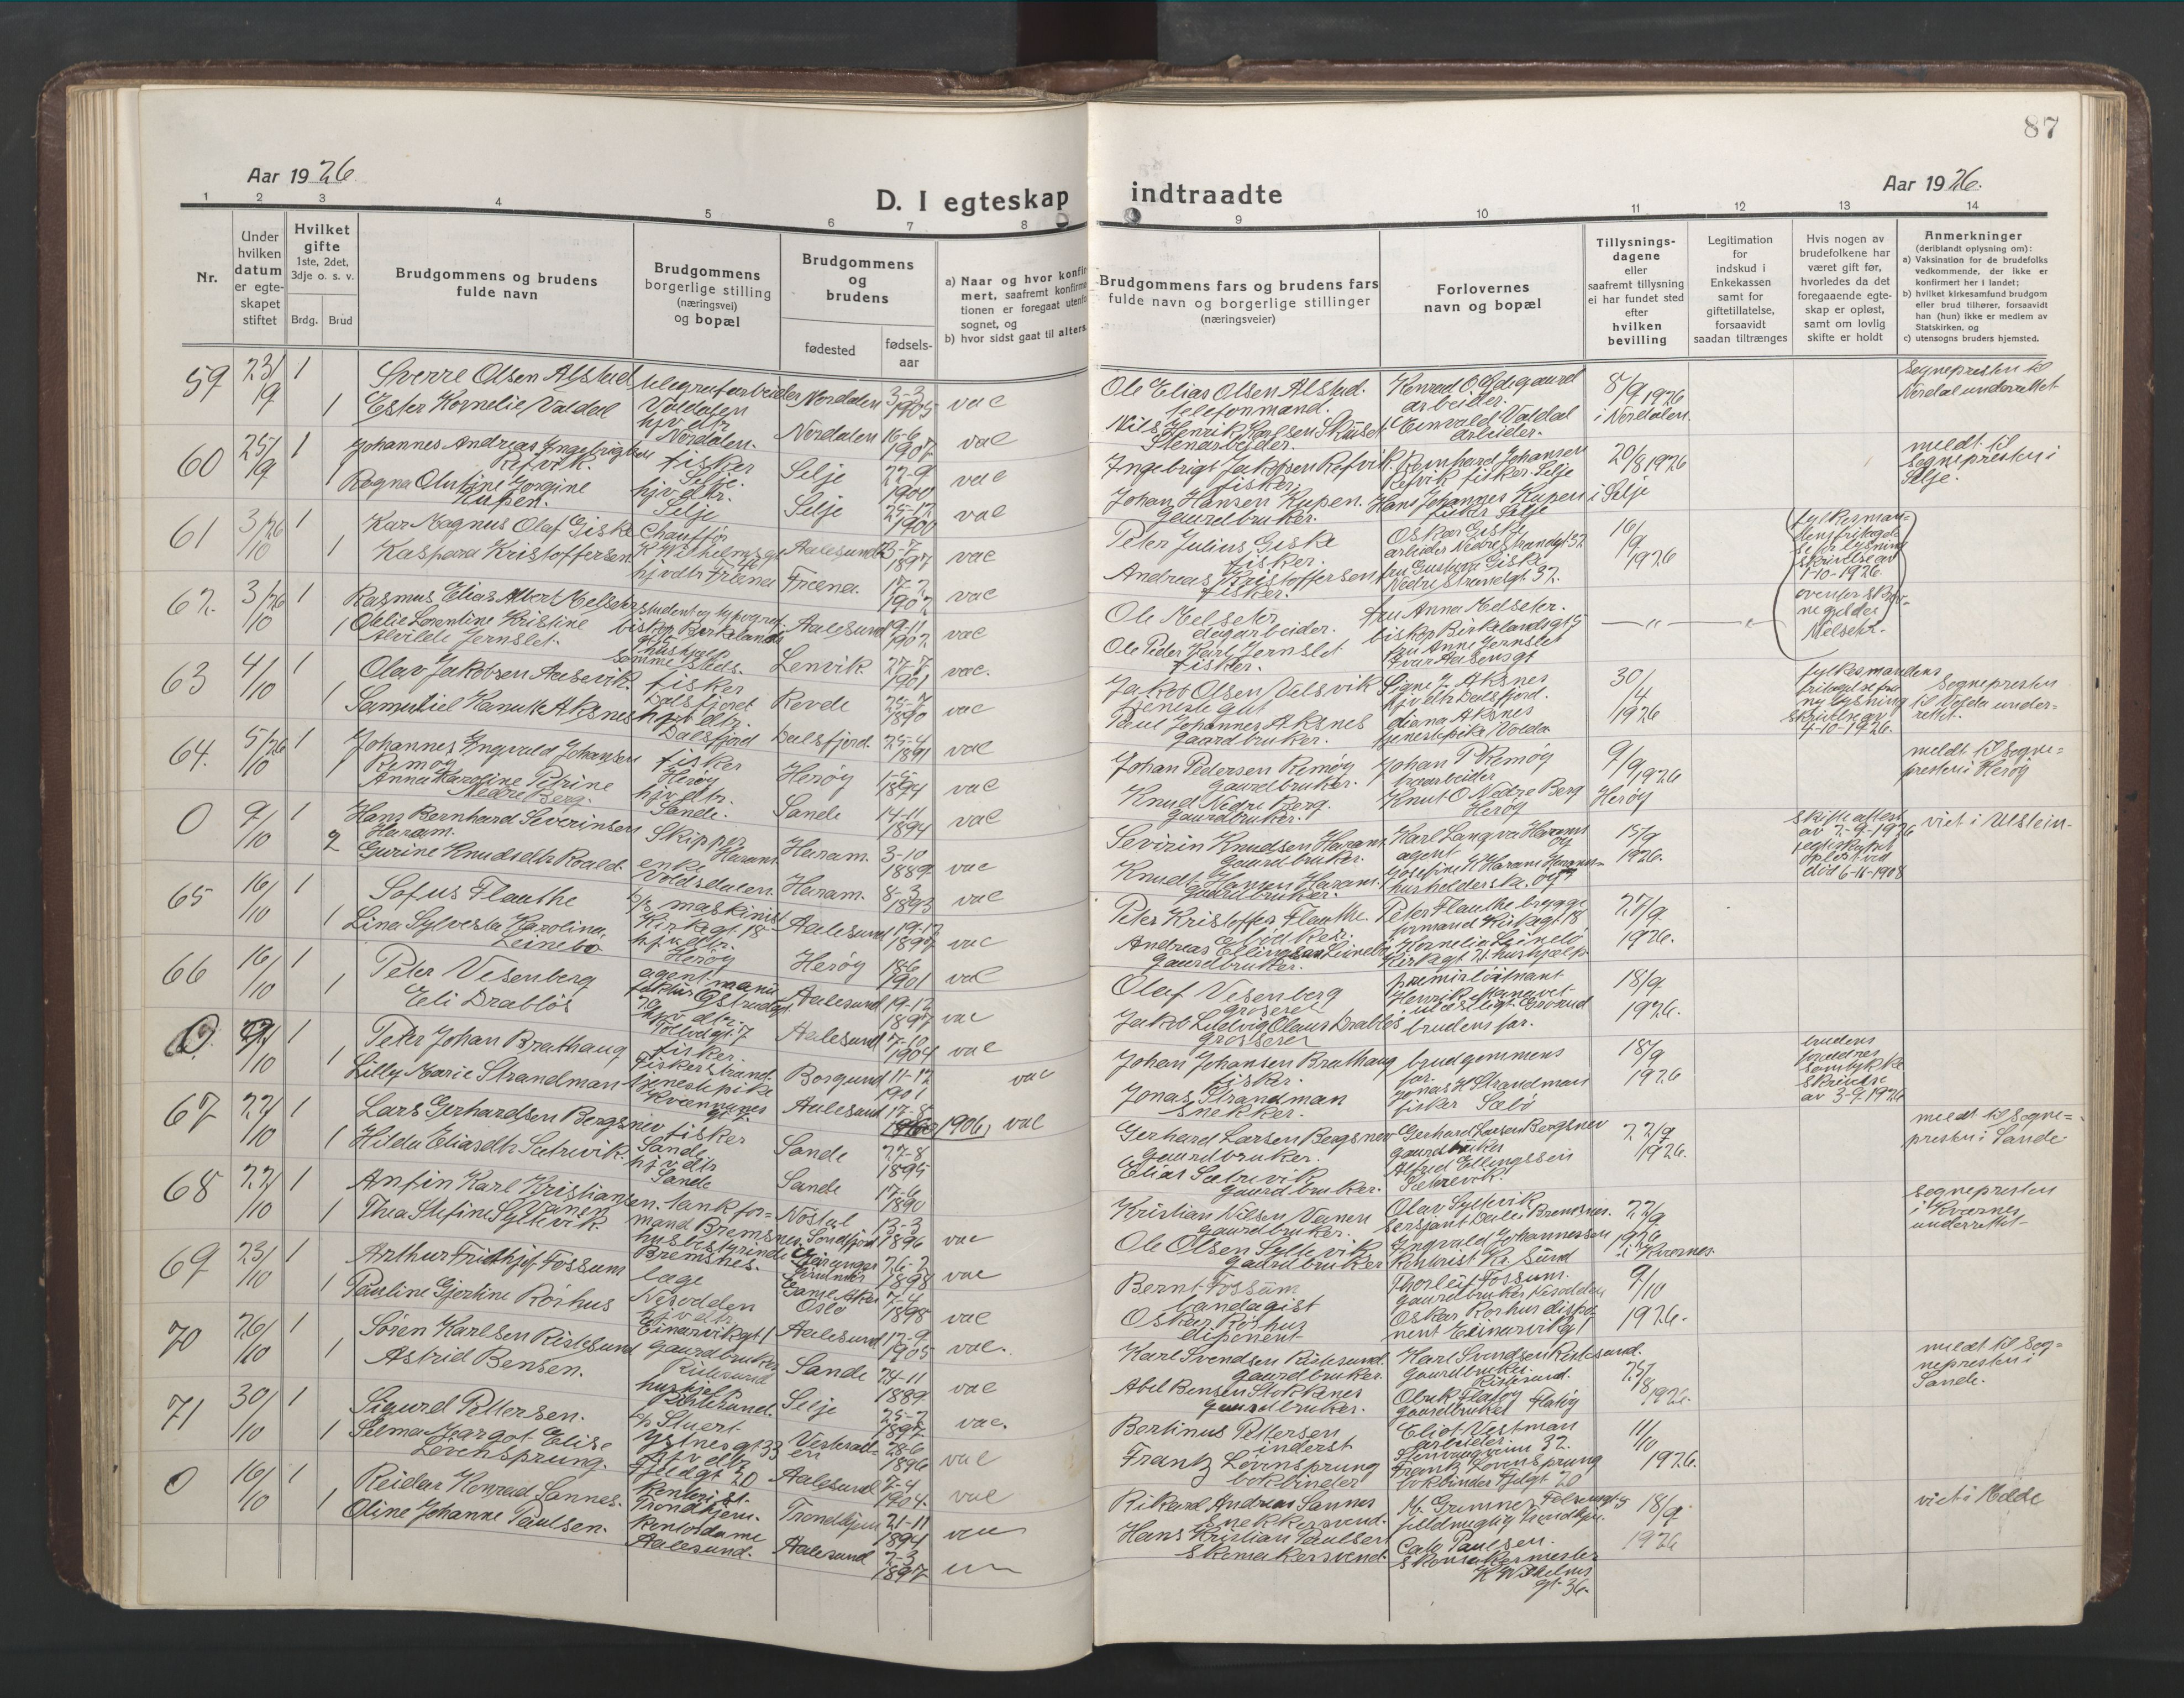 87
Aar 1926
Aar 1926.
D. I egteskap indtraadte
1 2 3 4 5 6 7 8 9 10 11 12 13 14
Nr.
Under hvilken datum er egteskapet stiftet
Hvilket gifte
1ste, 2det, 3dje o. s. v.
Brdg. Brud
Brudgommens og brudens fulde navn
Brudgommens borgerlige stilling (næringsvei) og bopæl
Brudgommens og brudens
fødested
fødsels-aar
a) Naar og hvor konfir
mert, saafremt konfirma
tionen er foregaat utenfo
sognet, og
b) hvor sidst gaat til alters.
Brudgommens fars og brudens fars
fulde navn og borgerlige stillinger
(næringsveier)
Forlovernes
navn og bopæl
Tillysnings-
dagene
eller
saafremt tillysning
ei har fundet sted
efter
hvilken
bevilling
Legitimation
for
indskud i
Enkekassen
samt for
giftetillatelse,
forsaavidt
saadan tiltrænges
Hvis nogen av
brudefolkene har
været gift før,
hvorledes da det
foregaaende egte-
skap er opløst,
samt om lovlig
skifte er holdt
Anmerkninger
(deriblandt oplysning om):
a) Vaksination for de brudefolks
vedkommende, der ikke er
konfirmert her i landet;
b) hvilket kirkesamfund brudgom
eller brud tilhører, forsaavidt
han (hun) ikke er medlem av
Statskirken, og
c) utensogns bruders hjemsted.
59 23/9 1 Sverre Olsen Alstad telegrafarbeider Nordalen 3-3 1905 vac Ole Elias Olsen Alstad. telefonmand. Konrad Ødegaard arbeider. 8/9 1926 Sognepresten til Nordal underrettet
1 Ester Kornelie Valdal hjv dtr Nordalen. Nordalen 16-6 1907 vac Nils Henrik Karlsen Stenarbeider. Einvald Valdal arbeider. i Nordalen.
60 25/9 1 Johannes Andreas Ingebrigtsen Refvik. fisker Selje. Selje 22-9 1900 vac Ingebrigt Jakobsen Refvik. fisker. Bernhard Johansen Refvik fisker. Selje 20/8 1926 meldt til Sognepresten i Selje.
1 Ragna Olufine Jorgine Kupen. hjv dtr. Selje Selje 25-12 1900 vac Johan Hansen Kupen. Gaardbruker. Hans Johannes Kupen fisker Selje i Selje
61 3/26 10 1 Kar Magnus Olaf Giske Chauffør Aalesund 1897 vac Peter Julius Giske fisker. Oskar Giske arbeider Nedre Strandgt 37 16/9 1926 fylkesmandens fritagelse for lysning skrivelse av 1-10-1926.
1 Kaspara Kristoffersen hjvdtr Fræna Fræna. 17-2 1902 vac Andreas Kristoffersen fisker. fru Gustava Giske Nedre Strandgt. 37.
62. 3/26 10 1 Rasmus Elias Albert Melseter student og typograf Aalesund 19-11 1902 vac Ole Melseter dagarbeider. fru Anna Melseter. biskop Birkelandsgt 5 — " — " ovenfor skrevne gjelder Melseter.
1 Odelie Lorentine Kristine Alvilde Jernslet. samme steds. Lenvik. 27-7 1901 vac. Ole Peder Karl Jernslet fisker. fru Anne Jernslet Ivar Aasensgt
63 4/10 1 Olav Jakobsen Aasevik. fisker Dalsfjord Rovde 1890 vac Jakob Olsen Velsvik tjenestegut Signe J. Aksnes hjv dtr Dalsfjord. 30/4 1926 fylkesmandens fritagelse fra ny lysning skrivelse av 4-10-1926. Sognepresten til Volda underrettet.
1 hjv dtr. Dalsfjord Dalsfjord. 25-4 1891 vac Paul Johannes Aksnes Gaardbruker. diana Aksnes tjenestepike Volda.
64. 5/26 10 1 Johannes Yngvald Johansen Remøy fisker Herøy Herøy 1894 vac Johan Pedersen Remøy gaardbruker. Johan P Remøy 9/9 1926 meldt til Sognepresten i Herøy
1 Anna Karoline Petrine Nedre Berg. hjv dtr. Sande. Sande 14-11 1894 vac Knud Nedre Berg. gaardbruker. Knut O Nedre Berg Herøy Herøy
0 9/10 1 Hans Bernhard Severinsen Haram. Skipper Haram Haram. 3-10 1889 vac Severin Knudsen Haram. Gaardbruker. Karl Langva Haram agent 15/9 1926. Skifteattest av 2-9-1926 egteskapet opløst ved død 6-11-1908 viet i Ulstein.
2 Gurine Knudsdtr Roald. enke Voldsdalen. Haram. 8-3 1893 vac Knudt Hansen Haram. gaardbruker. husholderske.
65 16/10 1 Sofus Flauthe maskinist Kirkegt. 18 Aalesund 19-12 1897 vac Peter Kristoffer Flauthe. Bødker. Peter Flauthe brygge formand Kirkegt 18 27/9 1926.
1 Lina Sylvesta Karoline Leinebø hjv dtr. Herøy Herøy 18-6 1901 vac Andreas Ellingsen Leinebø Gaardbruker. Kornelia Leinebø Kirkegt 21 hushjælp
66 16/10 1 Peter Vesenberg agent Aalesund 19-12 1897 vac Olaf Vesenberg grosserer premierløitnant 18/9 1926.
1 Eli Drabløs hjv dtr. Tollbdgt. 7 Aalesund 17-10 1904 vac Jakob Ludvig Olaus Drabløs grosserer brudens far.
0. /10 Peter Johan Brathaug fisker. Fiskerstrand Borgund 11-12 1901 vac Johan Johansen Brathaug fisker. brudgommens far. 18/9 1926 brudens foræidres samtykke skrivelse av 3-9 1926
1 Lilly Marie Strandman tjenestepike Aalesund 17-8 (1906) vac Jonas Strandman snekker. Jonas H Strandman fisker Sæbø
67 22/10 1 Lars Gerhardsen Bergsnev fisker Sande Sande 27-8 1895 Gerhard Larsen Bergsnev gaardbruker. Gerhard Larsen Bergsnev gaardbruker 22/9 1926. meldt til Sognepresten i Sande
1 Hilda Eliasdtr Sætrevik. hjv dtr Sande Sande 17-6 1890 Elias Sætrevik gaardbruker. Alfred Ellingssen Sætrevik.
68 22/10 1 Anfin Karl Kristiansen Vanen tankformand Bremsnes 13-3 1896 vac Kristian Nilsen Vanen gaardbruker. Olav Syltevik sersjant Dale Bremsnes. 22/9 1926 i Kvernes Sognepresten i Kvernes underrettet
1 Thea Stefine Syltevik. husbestyrinde Bremsnes. 26-2 1898 vac Ole Olsen Syltevik gaardbruker Ingvald Johannessen kontorist Kr. Sund
69 23/10 1 Arthur Fridthjof Fossum læge Nesodden Oslo 7-4 1898 vac Bernt Fossum bandagist Thorleif Fossum. gaardbruker Nesodden 9/10 1926.
1 Pauline Gjertine Rørhus hjv dtr. Einarvikgt 1 Aalesund 12-9 1905 vac. Oskar Rørhus disponent Oskar Rørhus disponent Einarvikgt 1
70 26/10 1 Søren Karlsen Ristesund gaardbruker Ristesund Sande 24-11 1889 vac Karl Svendsen Ristesund. gaardbruker. Karl Svendsen Ristesund. gaardbruker. Ristesund. 25/8 1926. meldt til Sognepresten i Sande.
1 Astrid Bensen. hushjelp Ristesund. Selje 25-2 1897 vac. Abel Bensen Stokkenes gaardbruker. Olrik Flatøy gaardbruker Flatøy
71 30/10 1 Sigurd Pettersen. Stuert Ystnesgt 33 28-6 1896 vac Bertinus Pettersen inderst Eliot Vestman arbeider. 11/10 1926.
1 Selma Margot Elise Levensprung. hjv dtr Fjeldgt 20 Aalesund 7-4 1904. vac Frantz Levensprung bokbinder Frantz Levensprung bokbinder Fjelgt 20
0 16/10 1 Reidar Konrad Sannes. kontorist. Trondhjem. Trondhjem 21-11 1894 vac Rikard Andreas Sannes Snekkersvend. 18/9 1926 viet i Molde
1 Oline Johanne Paulsen. kontordame Aalesund. Aalesund 2-3 1897 Hans Kristian Paulsen Skomakersvend. Paulsen. Skomakermester K Wilhelms gt. 36.